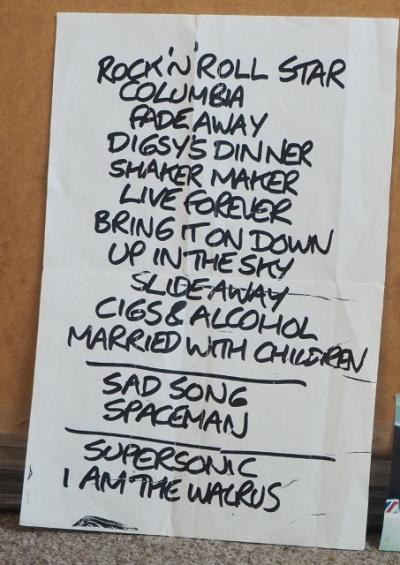 ROCK 'N' ROLL STAR
COLUMBIA
FADE AWAY
DIGSY'S DINNER
SHAKER MAKER
LIVE FOREVER
BRING IT ON DOWN
UP IN THE SKY
SLIDE AWAY
CIGS & ALCOHOL
MARRIED WITH CHILDREN
SAD SONG
SPACEMAN
SUPERSONIC
I AM THE WALRUS